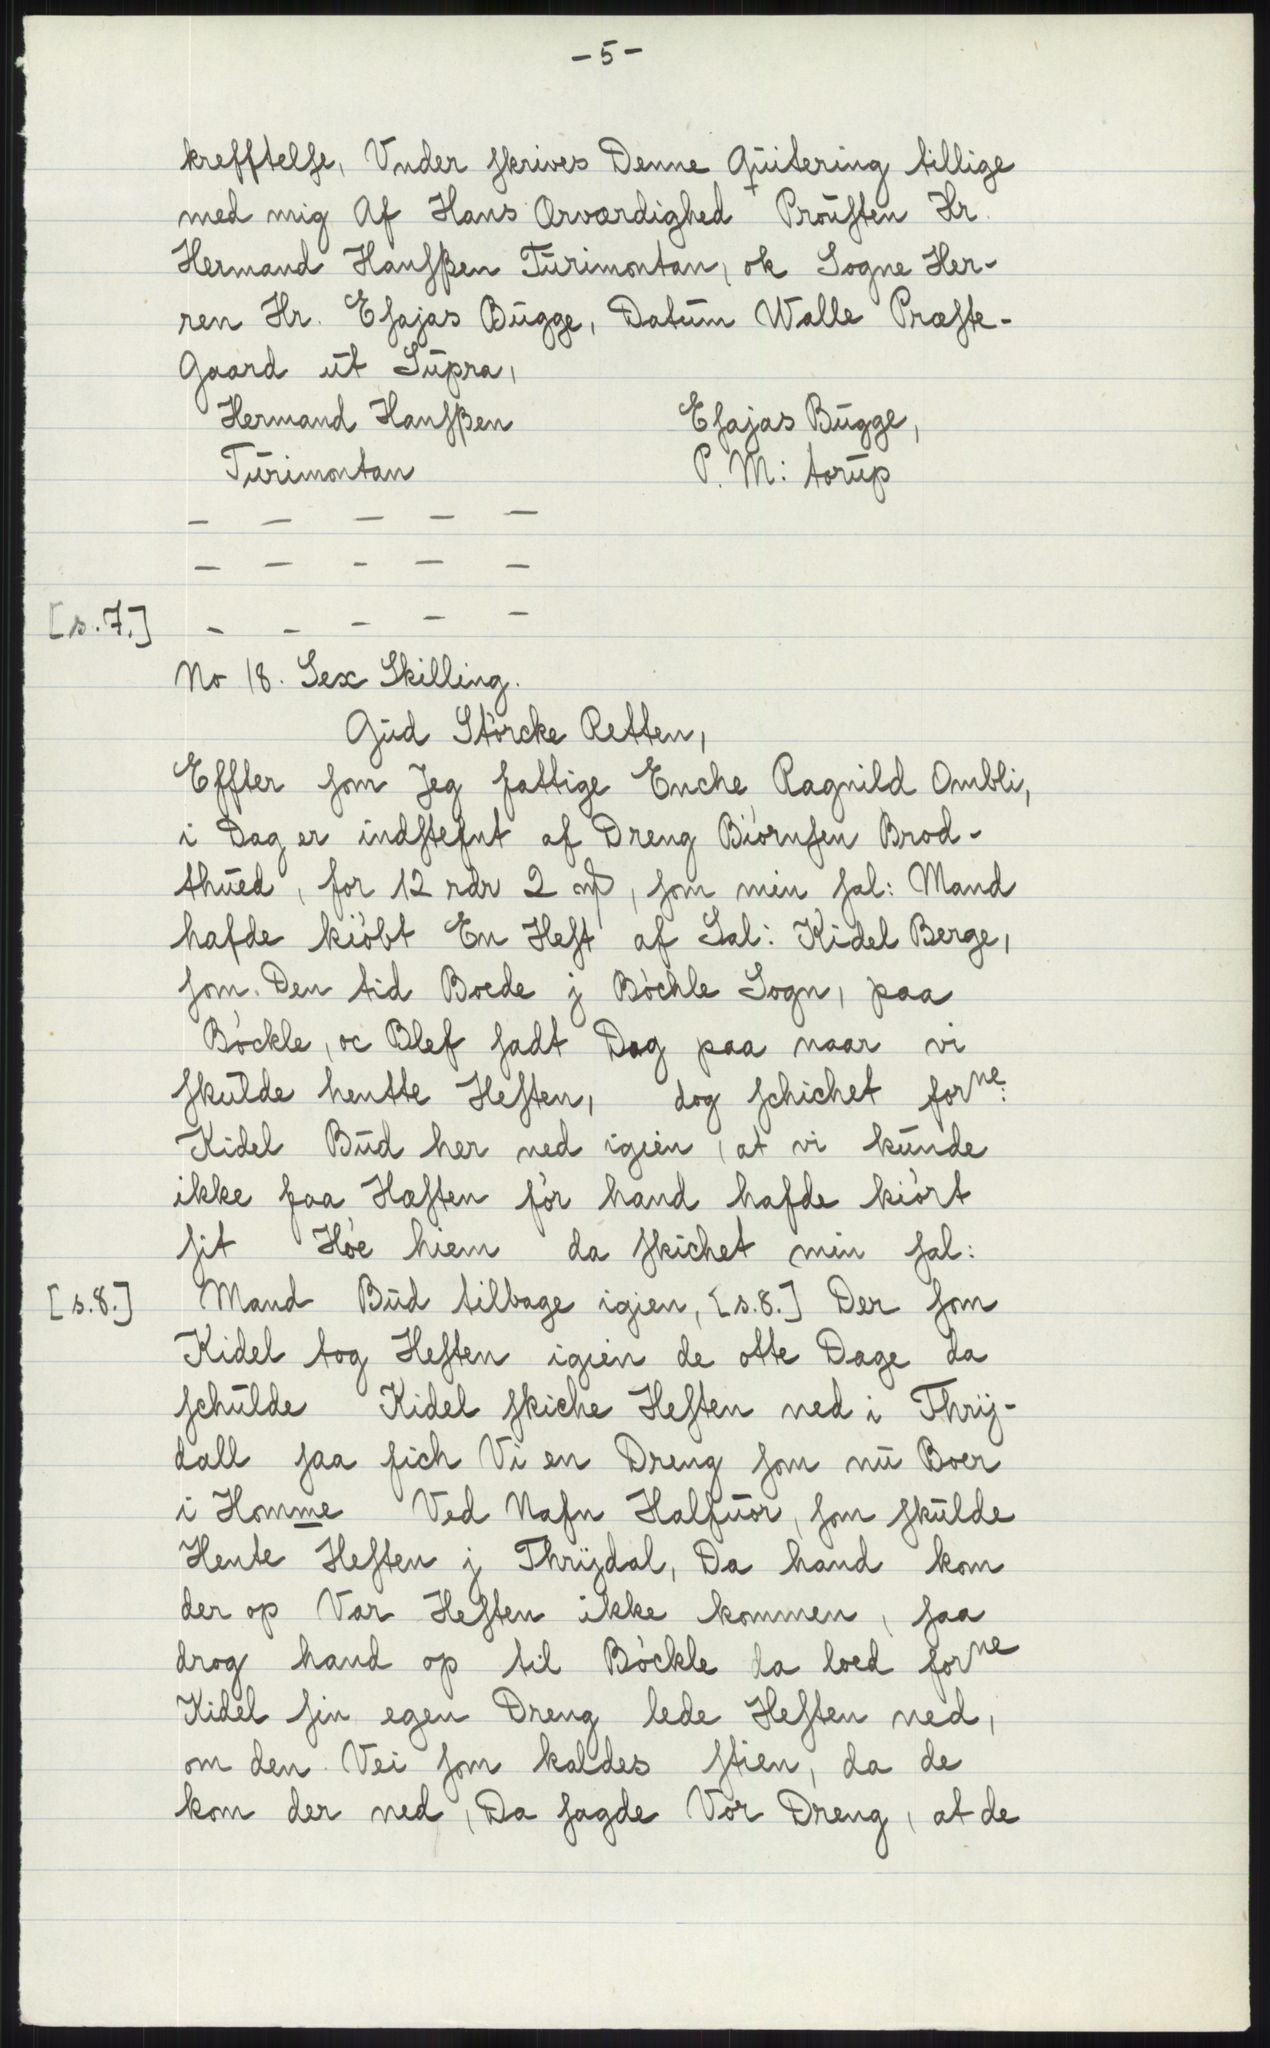 - 5 -
krefftelse, Vnder skrives Denne Qūitering tillige
med mig Af Hans Ærværdighed Proūsten Hr.
Hermand Hansßen Tūrimontan, ok Sogne Her-
ren Hr. Esajas Būgge, Datūm Walle Præste-
Gaard ūt Sūpra,
Hermand Hansßen Esajas Būgge,
Tūrimontan P. M: torūp
— — — — —
— — - — —
[s. 7.] — — — — —
No 18. Sex Skilling.
Gūd Störcke Retten,
Effter som Jeg fattige Encke Ragnild Ombli,
i Dag er indstefnt af Dreng Biörnsen Brod-
thūed, for 12 rdr 2 mß, som min sal: Mand
hafde kiöbt En Hest af Sal: Kidel Berge,
som Den tid Boede j Böckle Sogn, paa
Böckle, oc Blef sadt Dag paa naar vi
skūlde hentte Hesten, dog schichet forne:
Kidel Būd her ned igien, at vi kūnde
ikke faa Hæsten för hand hafde kiört
sit Höe hiem da skichet min sal:
[s. 8.] Mand Būd tilbage igien, [s. 8.] Der som
Kidel tog Hesten igien de otte Dage da
schūlde Kidel skiche Hesten ned i Thrij-
dall saa fich Vi en Dreng som nū Boer
i Homme Ved Nafn Halfūor, som skūlde
Hente Hesten j Thrijdal, Da hand kom
der op Var Hesten ikke kommen, saa
drog hand op til Böckle da loed forne
Kidel sin egen Dreng lede Hesten ned,
om den Vei som kaldes stien, da de
kom der ned, Da sagde Vor Dreng, at de